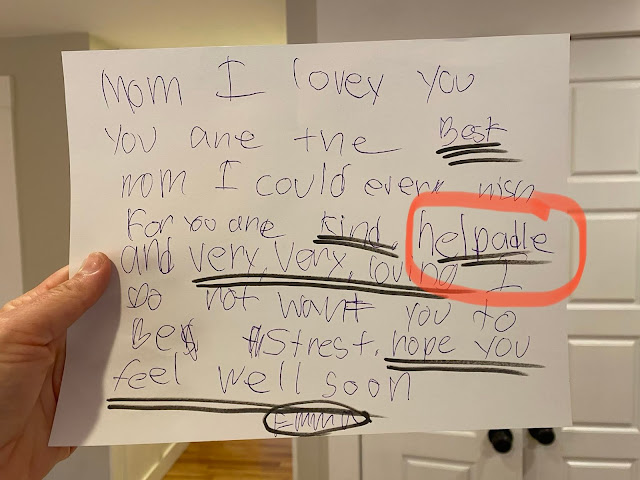 Mom I lovey you
You are the Best
mom I could every wish
For you are kind, helpadle
and very, very, loving I
Do not want you to
Be Strest. hope you
feel well soon
Emma